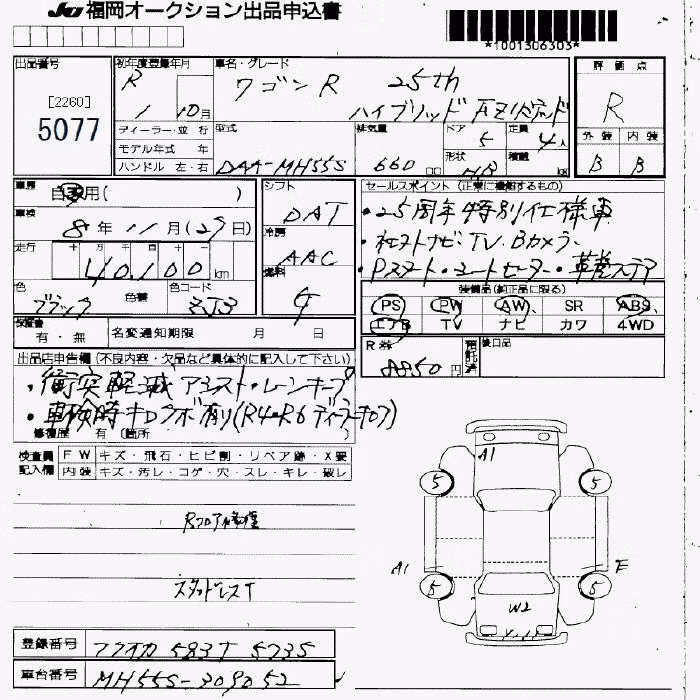 JU 福岡オークション出品申込書
*1001306303*
出品番号
[2260]
5077
初年度登録年月
R 1 10月
車名・グレード
ワゴンR 25th
ハイブリッド
評価点
R
外装 内装
B B
ディーラー・並行
モデル年式 年
ハンドル 左・右
型式
DAA-MH55S
排気量
660 cc
ドア
5
形状
HB
定員
4人
積載
kg
車歴
自家用( )
車検
8年 11月(29日)
走行
十 万 千 百 十 一
40,100 km
色
ブラック
色替
色コード
ZJ3
シフト
DAT
冷房
AAC
燃料
G
セールスポイント (正常に機能するもの)
・25周年特別仕様車
・社外ナビ・TV・Bカメラ、
・Pスタート・シートヒーター・革巻ステア
装備品(純正品に限る)
PS PW AW SR ABS
エアB TV ナビ カワ 4WD
保証書
有・無
名変通知期限 月 日
R券
8850円
預託済
後日品
出品店申告欄 (不良内容・欠品など具体的に記入して下さい)
・衝突軽減アシスト・レーンキープ
・車検時キロラボ有り(R4・R6ディーラーキロア)
修復歴 有 (箇所 )
検査員記入欄
FW キズ・飛石・ヒビ割・リペア跡・X要
内装 キズ・汚レ・コゲ・穴・スレ・キレ・破レ
Rフロア修復
スタッドレスT
A1
5 5
A1 E
5 5
W2
登録番号 フクオカ 583 T 5735
車台番号 MH55S-309052